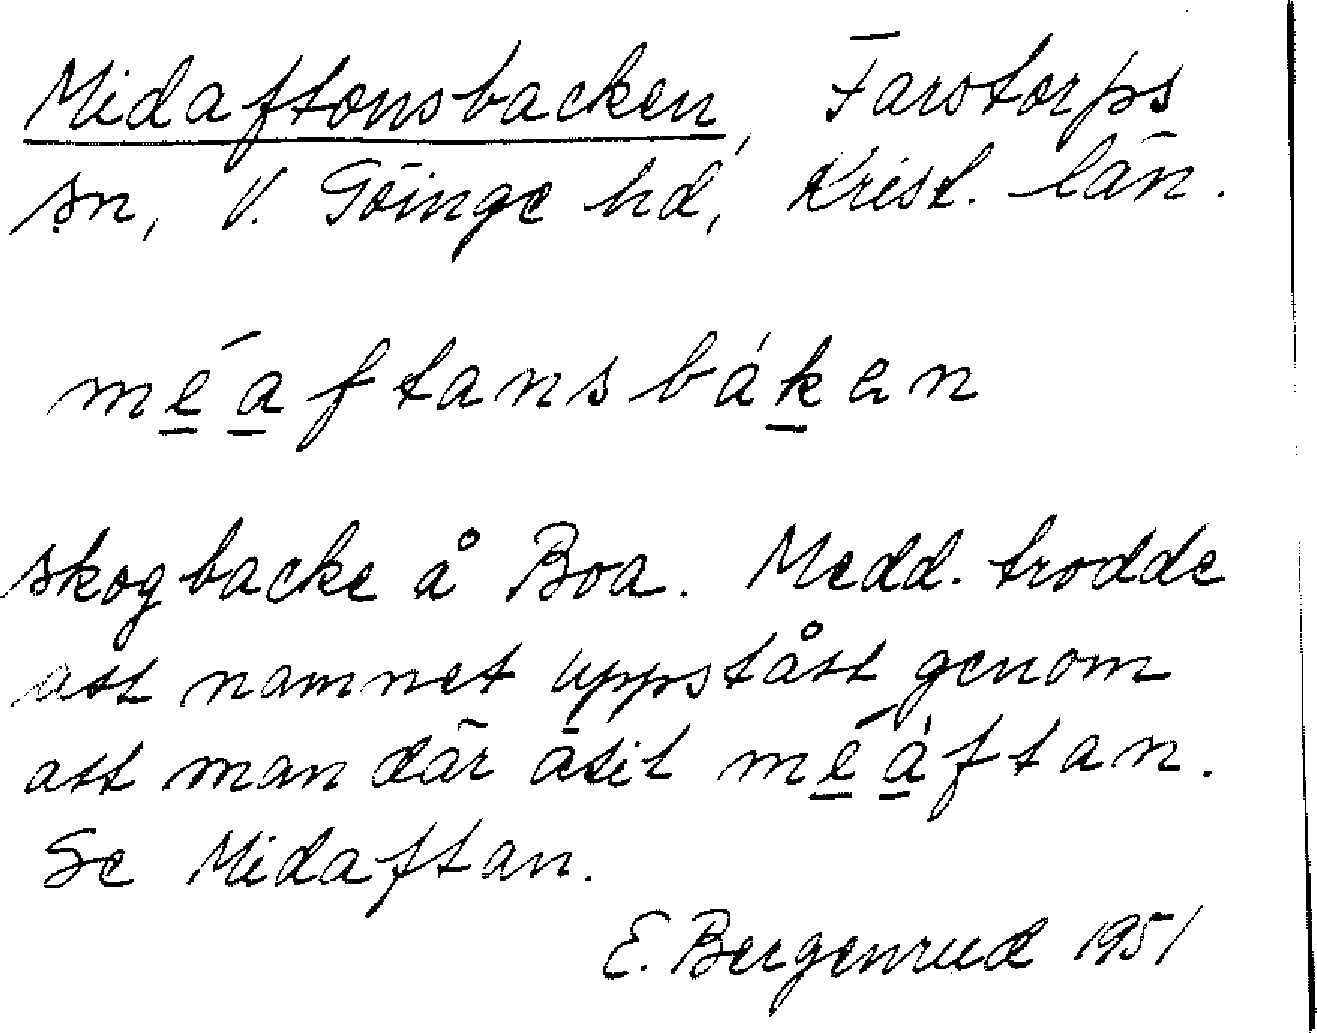 Midaftonsbacken, Farstorps
sn, V. Göinge hd, Krist. län.
méaftansbáken
skogbacke å Boa. Medd. trodde
att namnet uppstått genom
att man där ätit méáftan.
Se Midaftan.
E. Bergenrud 1951